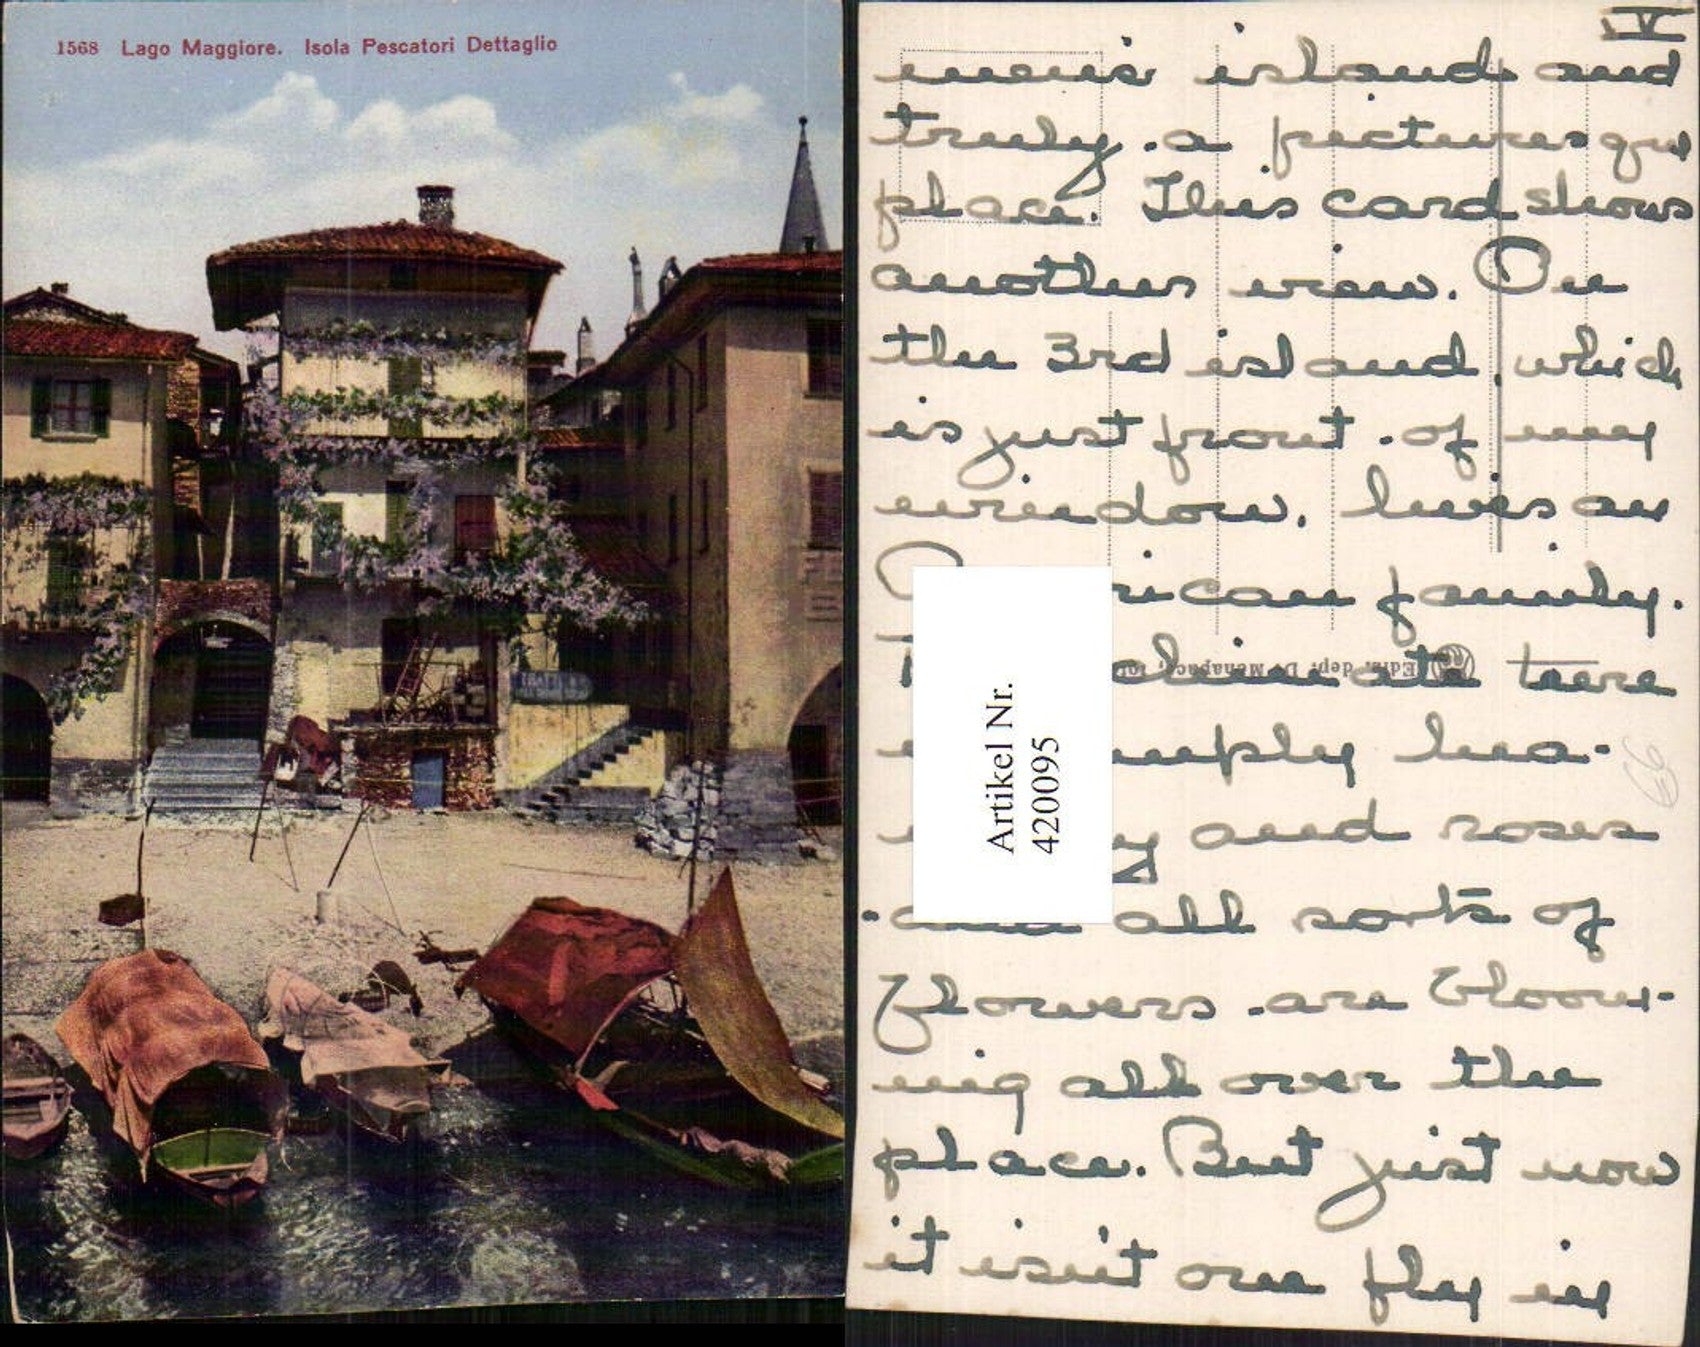 1568 Lago Maggiore. Isola Pescatori Dettaglio
V
men's island and
truly a picturesque
place. This card shows
another view. On
the 3rd island, which
is just front of my
window, lives an
rican family.
climate here
simply hea-
y and roses
and all sorts of
flowers are bloom-
ing all over the
place. But just now
it isn't one fly in
Artikel Nr.
4200095